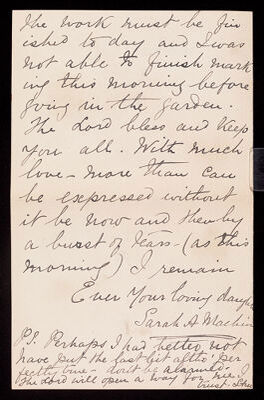 The work must be fin
ished to day and I was
not able to finish mark
ing this morning before
going in the garden.
The Lord bless and keep
you all. With much
love - more than can
be expressed without
it be now and then by
a burst of tears - (as this
morning) I remain
Ever Your loving daugh
Sarah A
P.S. Perhaps I had better not
have put the last bit altho' per
fectly true - don't be alarmed,
The Lord will open a way for me. I
trust.